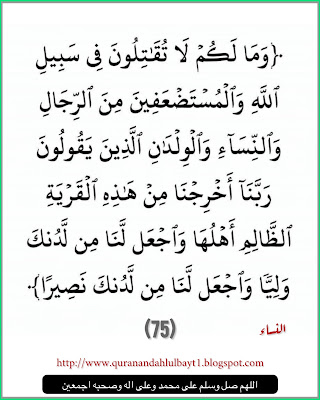 ﴿وَمَا لَكُمۡ لَا تُقَٰتِلُونَ فِي سَبِيلِ
ٱللَّهِ وَٱلۡمُسۡتَضۡعَفِينَ مِنَ ٱلرِّجَالِ
وَٱلنِّسَآءِ وَٱلۡوِلۡدَٰنِ ٱلَّذِينَ يَقُولُونَ
رَبَّنَآ أَخۡرِجۡنَا مِنۡ هَٰذِهِ ٱلۡقَرۡيَةِ
ٱلظَّالِمِ أَهۡلُهَا وَٱجۡعَل لَّنَا مِن لَّدُنكَ
وَلِيّٗا وَٱجۡعَل لَّنَا مِن لَّدُنكَ نَصِيرًا﴾.
النساء (75)
http://www.quranandahlulbayt1.blogspot.com
اللهم صل وسلم على محمد وعلى اله وصحبه اجمعين